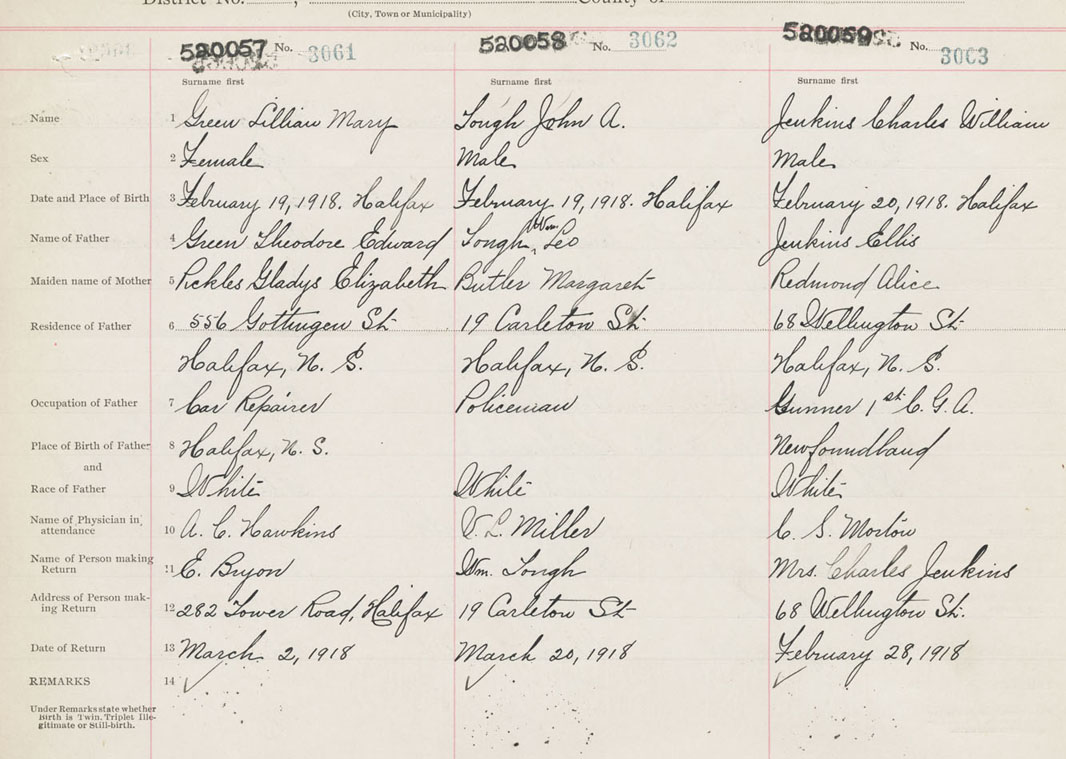 District No. , County of
(City, Town or Municipality)
520057 No. 3061 520058 No. 3062 520059 No. 3063
Surname first Surname first Surname first
Name 1 Green Lillian Mary Tough John A. Jenkins Charles William
Sex 2 Female Male Male
Date and Place of Birth 3 February 19, 1918. Halifax February 19, 1918. Halifax February 20, 1918. Halifax
Name of Father 4 Green Theodore Edward Tough Wm. Leo Jenkins Ellis
Maiden name of Mother 5 Pickles Gladys Elizabeth Butler Margaret Redmond Alice
Residence of Father 6 556 Gottingen St. 19 Carleton St. 68 Wellington St.
Halifax, N. S. Halifax, N. S. Halifax, N. S.
Occupation of Father 7 Car Repairer Policeman Gunner 1st C. G. A.
Place of Birth of Father 8 Halifax, N. S. Newfoundland
and
Race of Father 9 White White White
Name of Physician in attendance 10 A. C. Hawkins V. L. Miller C. S. Morton
Name of Person making Return 11 E. Bryon Wm. Tough Mrs. Charles Jenkins
Address of Person mak- ing Return 12 282 Tower Road, Halifax 19 Carleton St 68 Wellington St.
Date of Return 13 March 2, 1918 March 20, 1918 February 28, 1918
REMARKS 14
Under Remarks state whether
Birth is Twin. Triplet Ille-
gitimate or Still-birth.